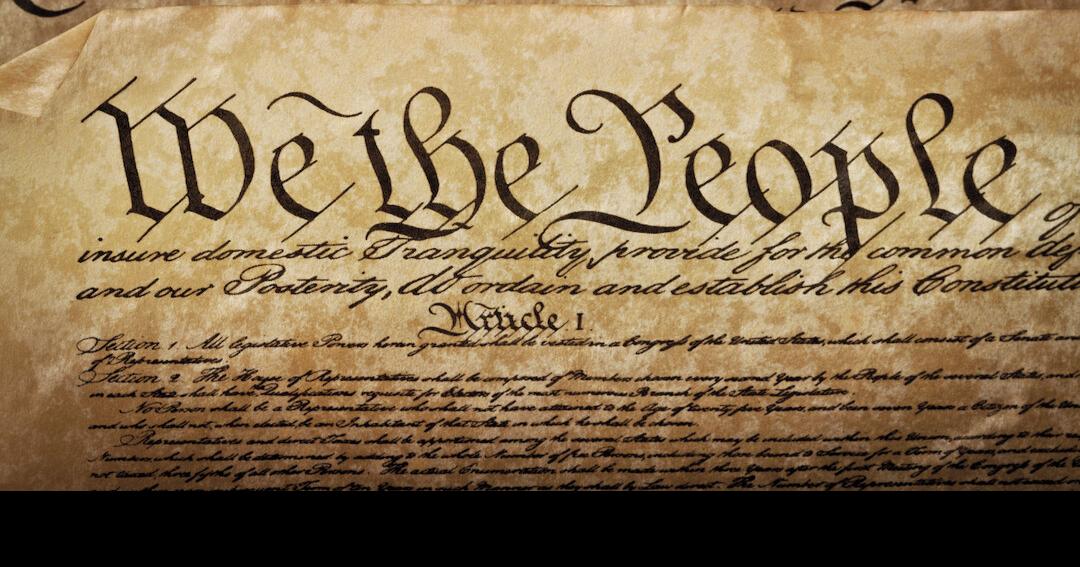 We the People
insure domestic Tranquility, provide for the common def
and our Posterity, do ordain and establish this Constituti
Article I.
Section 1. All legislative Powers herein granted shall be vested in a Congress of the United States, which shall consist of a Senate and
of Representatives.
Section 2. The House of Representatives shall be composed of Members chosen every second Year by the People of the several States, and
in each State shall have Qualifications requisite for Electors of the most numerous Branch of the State Legislature.
No Person shall be a Representative who shall not have attained to the Age of twenty five Years, and been seven Years a Citizen of the
and who shall not, when elected, be an Inhabitant of that State in which he shall be chosen.
Representatives and direct Taxes shall be apportioned among the several States which may be included within this Union, according to their
Numbers, which shall be determined by adding to the whole Number of free Persons, including those bound to Service for a Term of Years, and
not taxed, three fifths of all other Persons. The actual Enumeration shall be made within three Years after the first Meeting of the Congress of the
subsequent Term of ten Years, in such Manner as they shall by Law direct. The Number of Representatives shall not exceed